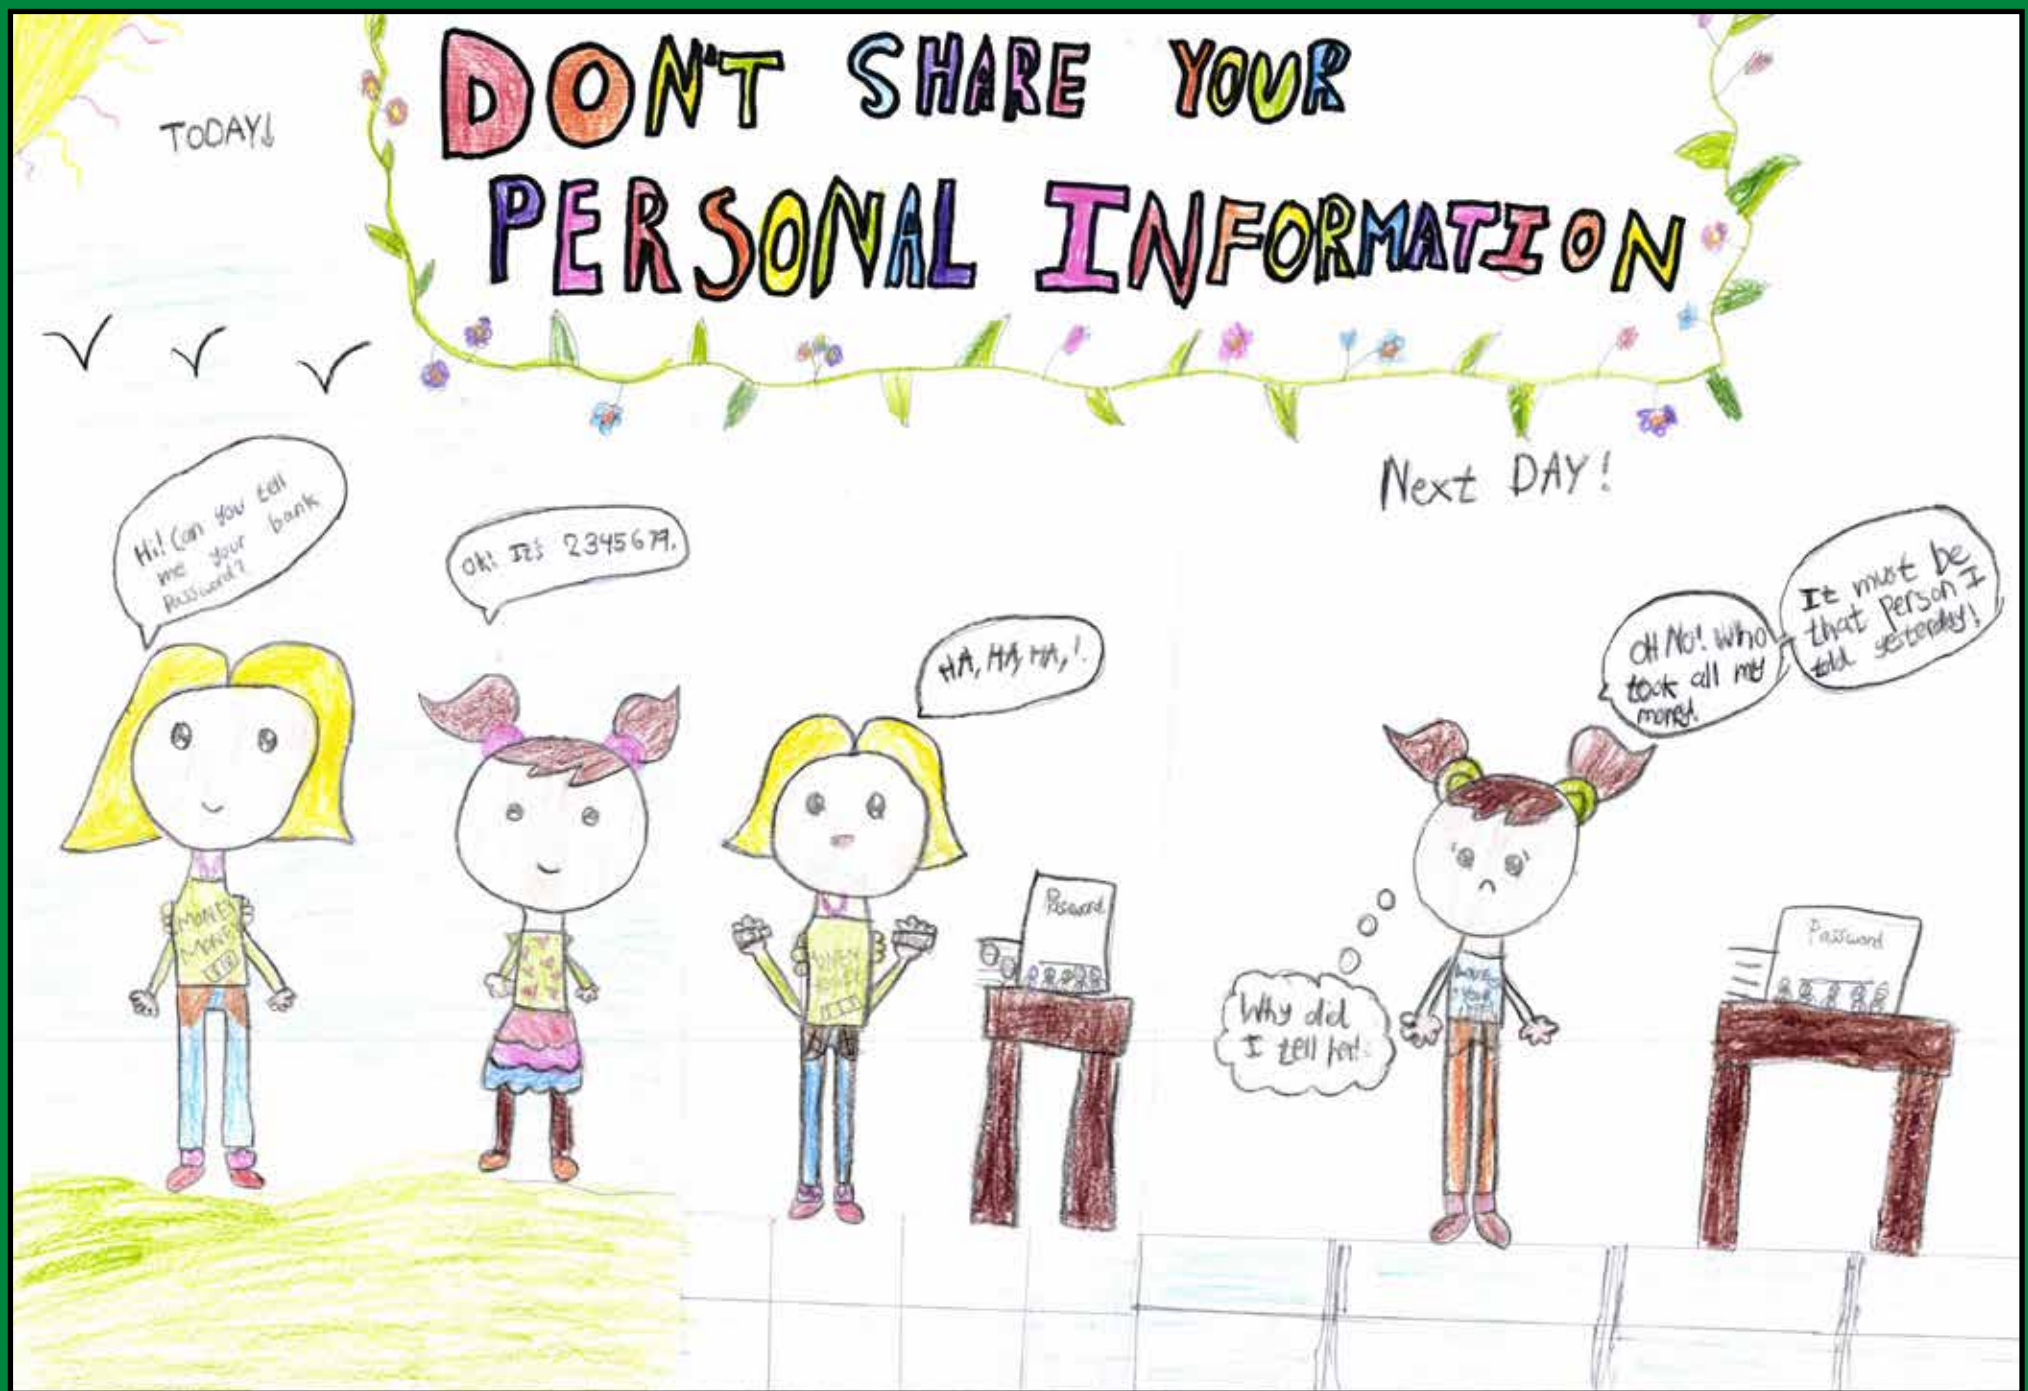 DON'T SHARE YOUR
PERSONAL INFORMATION
TODAY!
Hi! Can you tell
me your bank
Password?
Ok! It's 2345679.
HA, HA, HA,!
MONEY
MONEY
Password
Next DAY!
OH NO! Who
took all my
money!
It must be
that person I
told yesterday!
Why did
I tell her!
Password